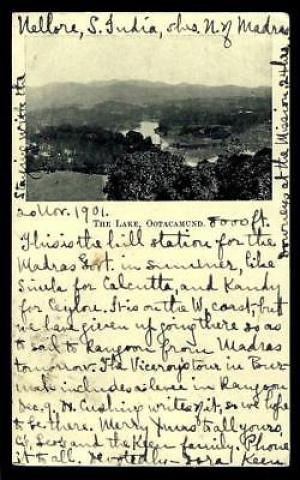 Nellore, S. India, ohs. N. of Madras
Staying with the
Downeys at the Mission 24 hrs
20 Nov. 1901.
THE LAKE, OOTACAMUND. 8000 ft.
This is the hill station for the
Madras Govt. in summer, like
Simla for Calcutta, and Kandy
for Ceylon. It is on the W. coast, but
we have given up going there so as
to sail to Rangoon from Madras
tomorrow. The Viceroy's tour in Bur-
mah includes a levee in Rangoon
Dec. 9. H. Cushing writes of it, so we hope
to be there. Merry Xmas to all yours,
Geo's and the Keen family. Phone
it to all. Devotedly - Dora Keen